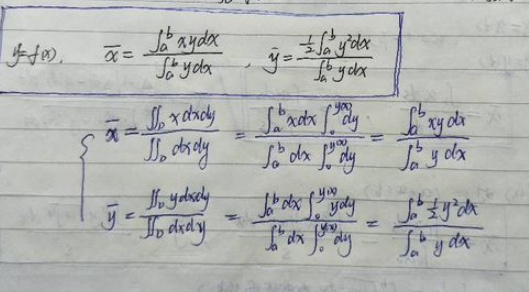 y=f(x), x̄ = ∫ₐᵇ xydx / ∫ₐᵇ ydx , ȳ = ½∫ₐᵇ y²dx / ∫ₐᵇ ydx
x̄ = ∬_D xdxdy / ∬_D dxdy = ∫ₐᵇ xdx ∫₀^{y(x)} dy / ∫ₐᵇ dx ∫₀^{y(x)} dy = ∫ₐᵇ xy dx / ∫ₐᵇ y dx
ȳ = ∬_D ydxdy / ∬_D dxdy = ∫ₐᵇ dx ∫₀^{y(x)} ydy / ∫ₐᵇ dx ∫₀^{y(x)} dy = ∫ₐᵇ ½y²dx / ∫ₐᵇ y dx